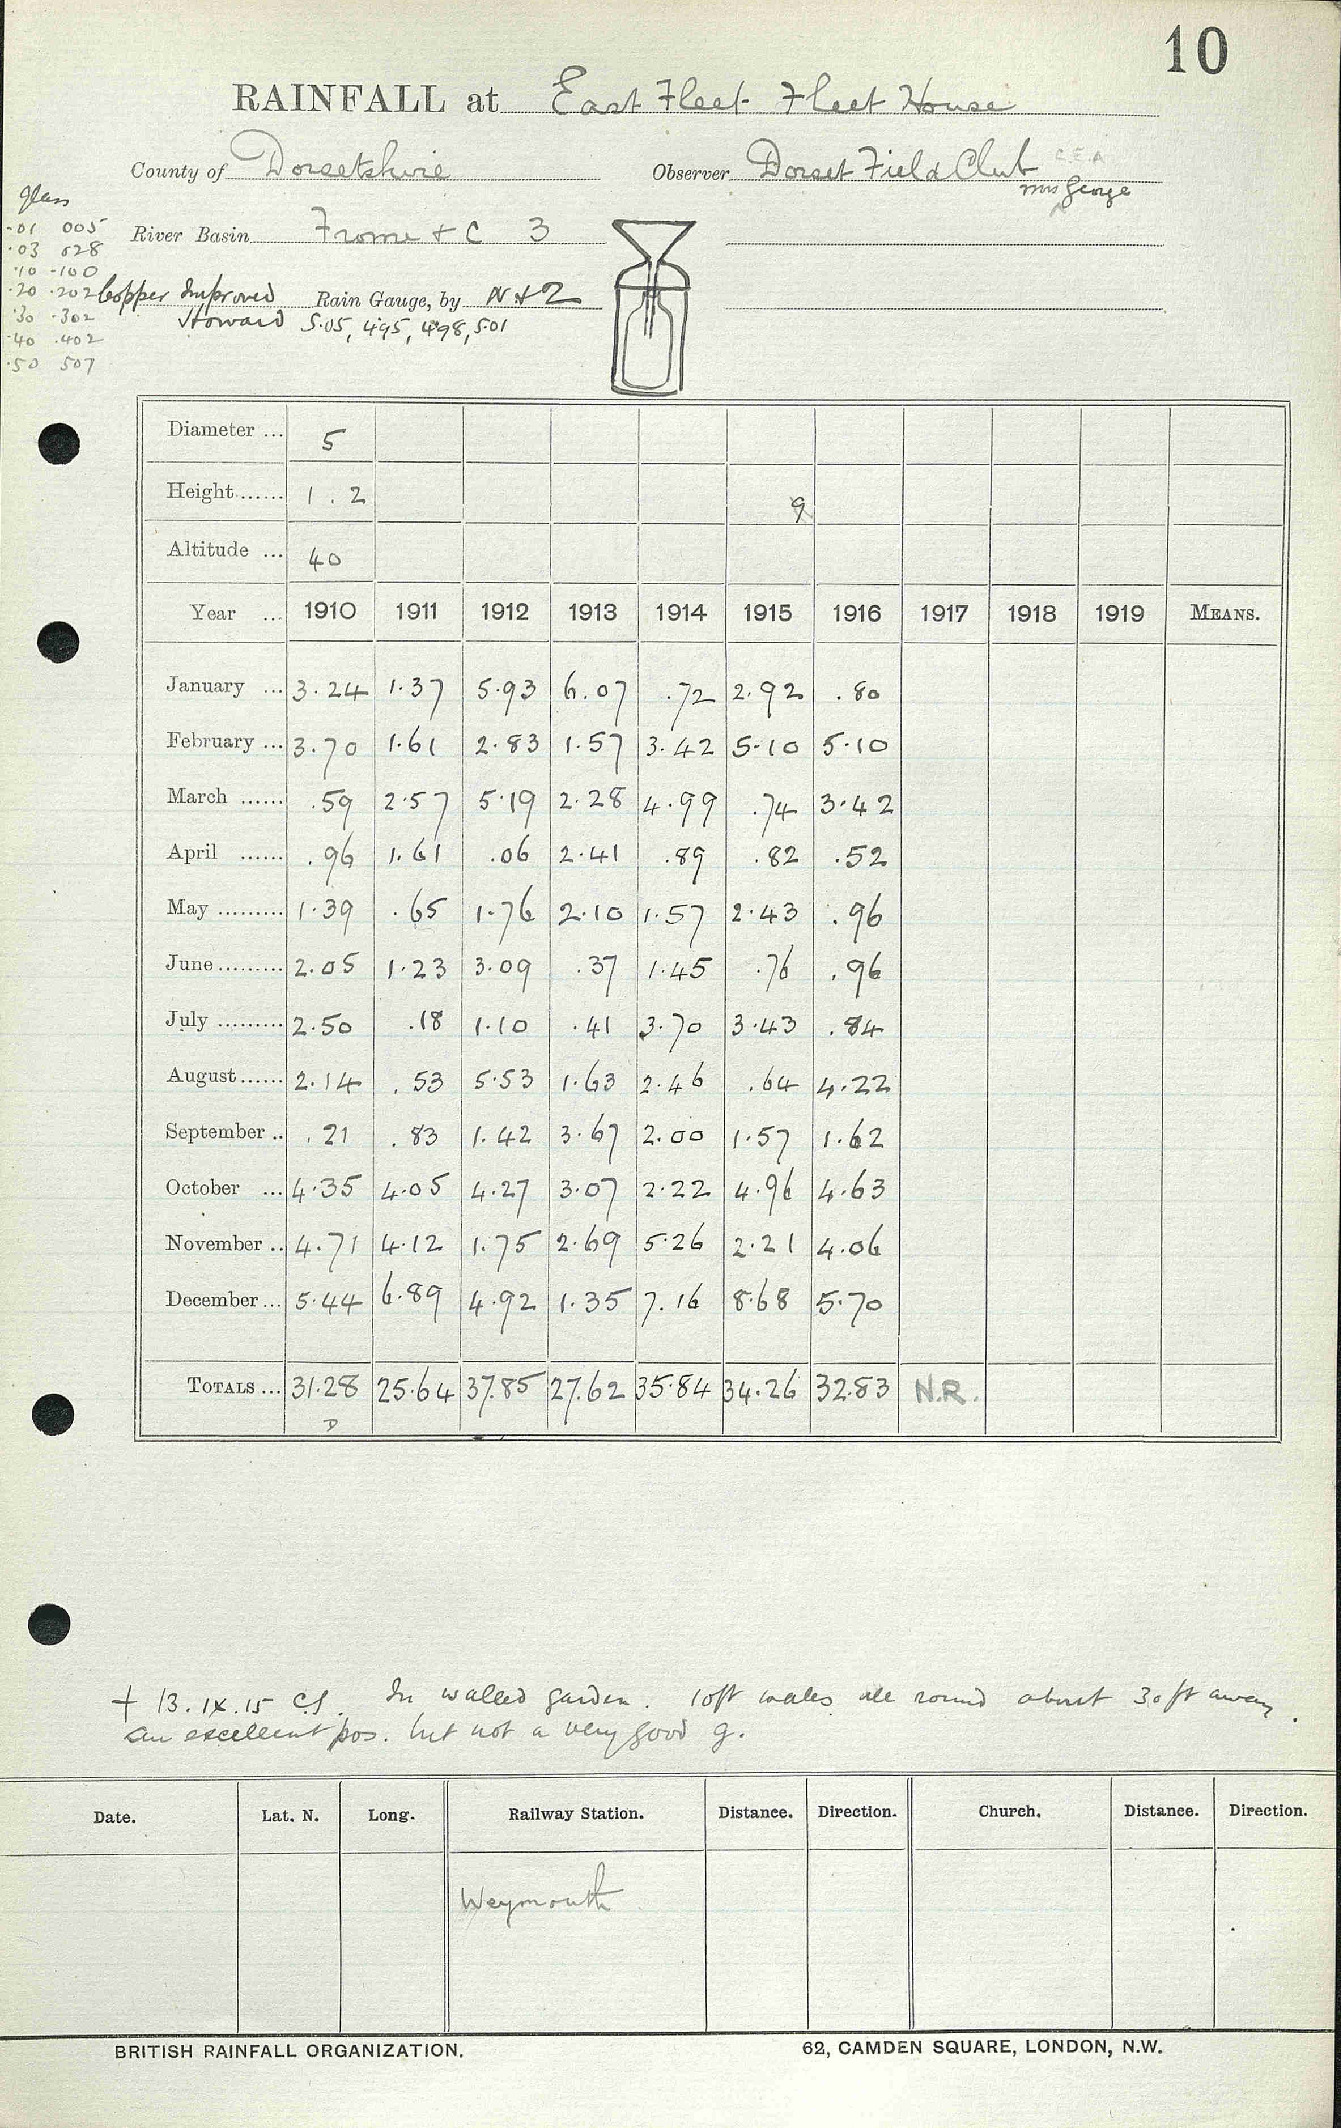 10
RAINFALL at East Fleet Fleet House
County of Dorsetshire Observer Dorset Field Club C.E.A
Mrs George
glass
.01 005
River Basin Frome & C 3
.03 028
.10 .100
.20 .202 Copper Improved Rain Gauge, by N & Z
.30 .302 Howard 5.05, 4.95, 4.98, 5.01
.40 .402
.50 507
Diameter ... 5
Height ...... 1 . 2 9
Altitude ... 40
Year ... 1910 1911 1912 1913 1914 1915 1916 1917 1918 1919 MEANS.
January ... 3.24 1.37 5.93 6.07 .72 2.92 .80
February ... 3.70 1.61 2.83 1.57 3.42 5.10 5.10
March ...... .59 2.57 5.19 2.28 4.99 .74 3.42
April ...... .96 1.61 .06 2.41 .89 .82 .52
May ......... 1.39 .65 1.76 2.10 1.57 2.43 .96
June ......... 2.05 1.23 3.09 .37 1.45 .76 .96
July ......... 2.50 .18 1.10 .41 3.70 3.43 .84
August ...... 2.14 .53 5.53 1.63 2.46 .64 4.22
September .. .21 .83 1.42 3.67 2.00 1.57 1.62
October ... 4.35 4.05 4.27 3.07 2.22 4.96 4.63
November .. 4.71 4.12 1.75 2.69 5.26 2.21 4.06
December ... 5.44 6.89 4.92 1.35 7.16 8.68 5.70
TOTALS ... 31.28 25.64 37.85 27.62 35.84 34.26 32.83 N.R.
D
† 13.IX.15 C.S. In walled garden. 10ft walls all round about 30ft away.
an excellent pos. but not a very good g.
Date. Lat. N. Long. Railway Station. Distance. Direction. Church. Distance. Direction.
Weymouth
BRITISH RAINFALL ORGANIZATION. 62, CAMDEN SQUARE, LONDON, N.W.